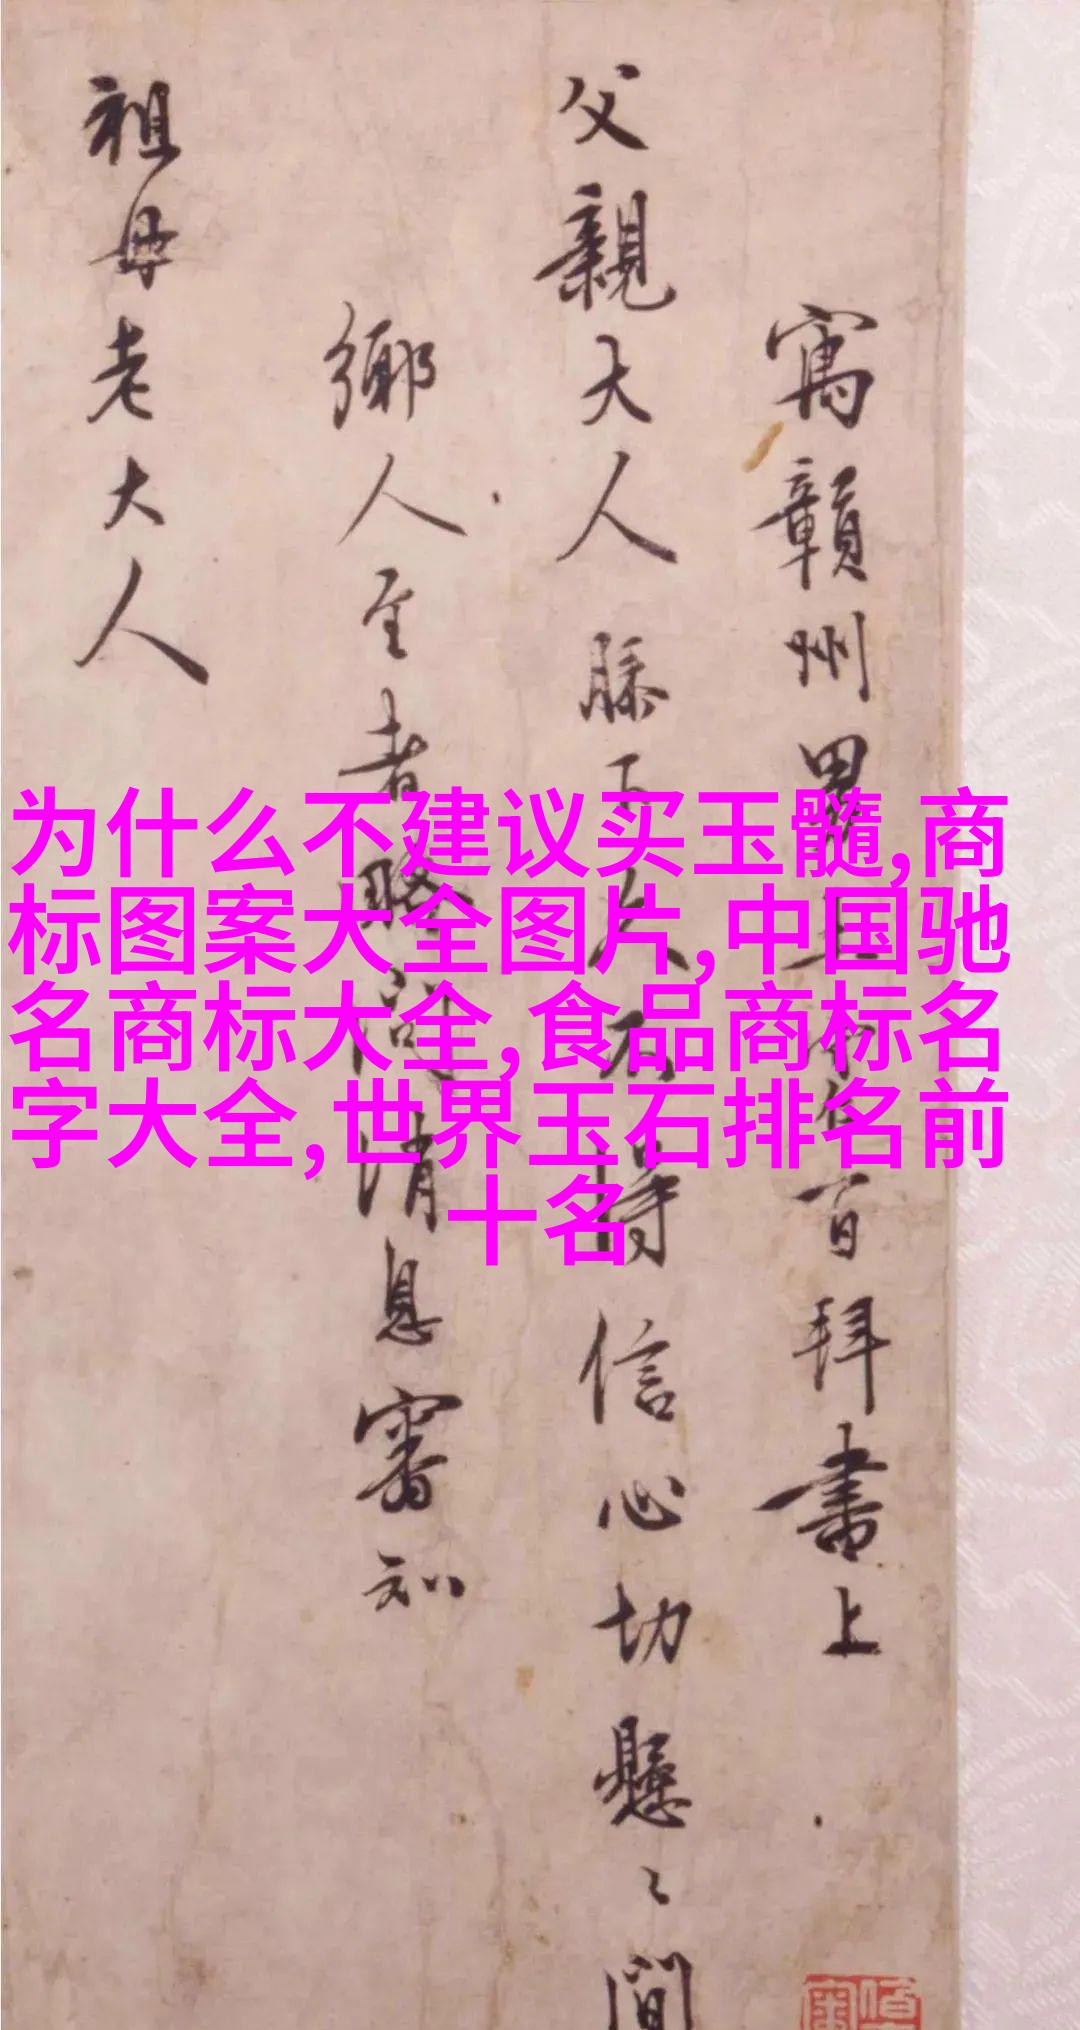 寓贛州男上百拜書上
父親大人膝下久不得信心切懸〻間
鄉人至者略問消息審知
祖母老大人
为什么不建议买玉髓,商
标图案大全图片,中国驰
名商标大全,食品商标名
字大全,世界玉石排名前
十名